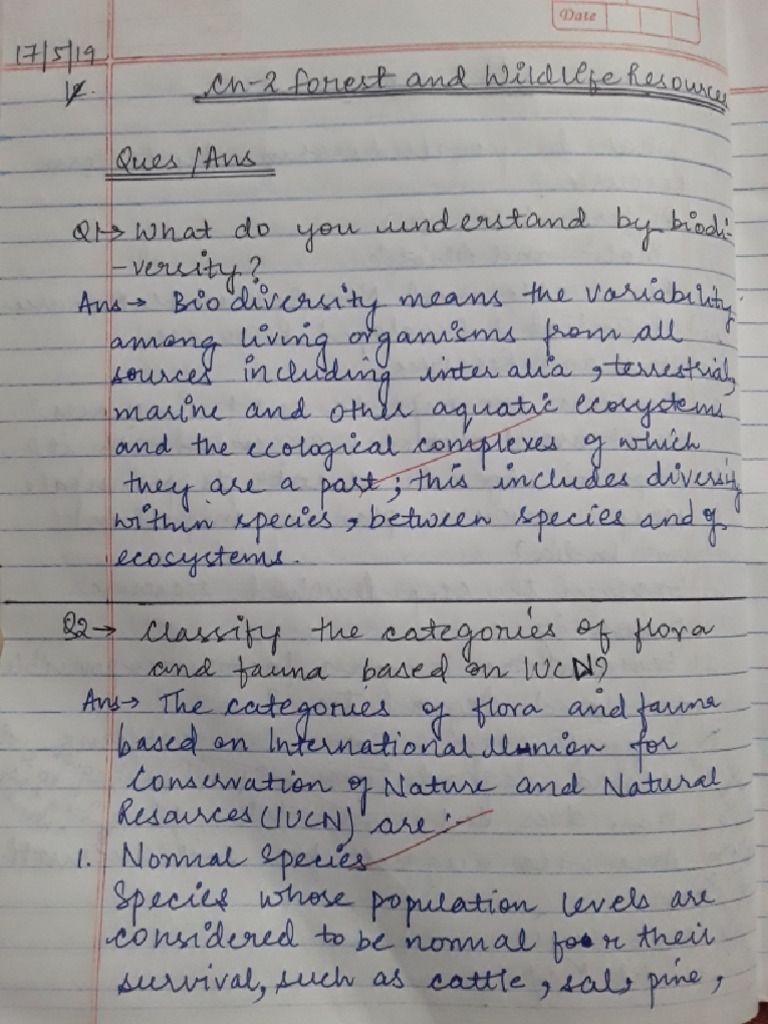 Date
17/5/19
Ch-2 Forest and Wildlife Resources
Ques/Ans
Q1→ What do you understand by biodi-
-versity?
Ans→ Biodiversity means the variability
among living organisms from all
sources including inter alia, terrestrial,
marine and other aquatic ecosystems
and the ecological complexes of which
they are a part; this includes diversity
within species, between species and of
ecosystems.
Q2→ Classify the categories of flora
and fauna based on IUCN?
Ans→ The categories of flora and fauna
based on International Union for
Conservation of Nature and Natural
Resources (IUCN) are:-
1. Normal Species
Species whose population levels are
considered to be normal for their
survival, such as cattle, sal, pine,